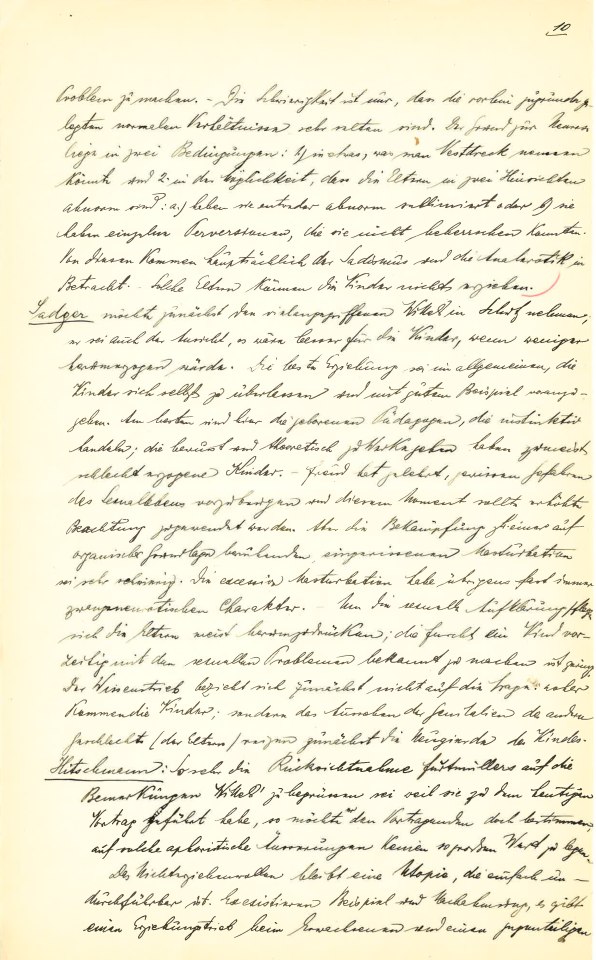 10
Problem zu machen. – Die Schwierigkeit ist nur, dass die vorhin zugrunde ge-
legten normalen Verhältnisse sehr selten sind. Der Grund zur Neurose
liege in zwei Bedingungen: 1) in etwas, was man nennen
könnte und 2. in der Möglichkeit, dass die Eltern in zwei Hinsichten
abnorm sind: a.) leben sie entweder abnorm sublimiert oder b) sie
haben einzelne Perversionen, die sie nicht beherrschen konnten.
Von diesen kommen hauptsächlich der Sadismus und die Analerotik in
Betracht. – Solche Eltern können die Kinder nichts erziehen.
Sadger möchte zunächst den vielangegriffenen Wikel in Schutz nehmen;
er sei auch der Ansicht, es wäre besser für die Kinder, wenn weniger
herumerzogen würde. Die beste Erziehung sei im allgemeinen, die
Kinder sich selbst zu überlassen und mit gutem Beispiel voranzu-
gehen. Am besten sind hier die geborenen Pädagogen, die instinktiv
handeln; die bewusst und theoretisch zu Werke gehen haben zumeist
schlecht erzogene Kinder. – Freud hat gelehrt, gewissen Gefahren
des Sexuallebens vorzubeugen und diesem Moment sollte erhöhte
Beachtung zugewendet werden. Aber die Bekämpfung einer auf
organischer Grundlage beruhenden, eingerissenen Masturbation
sei sehr schwierig. Die exzessive Masturbation habe übrigens fast immer
zwangsneurotischen Charakter. – Um die sexuelle Aufklärung pflegen
sich die Eltern meist herumzudrücken; die Furcht ein Kind vor-
zeitig mit den sexuellen Problemen bekannt zu machen ist
Der Wissenstrieb bezieht sich zunächst nicht auf die Frage: woher
kommen die Kinder; sondern das Aussehen der Genitalien des andern
Geschlechts (der Eltern) reizen zunächst die Neugierde des Kindes.
Hitschmann: So sehr die Rücksichtnahme Furtmüllers auf die
Bemerkungen Wikels zu begrüssen sei weil sie zu dem heutigen
Vortrag geführt habe, so möchte er den Vortragenden doch bestimmen,
auf solche aphoristische Äusserungen keinen so grossen Wert zu legen.
Das Nichterziehenwollen bleibt eine Utopie, die einfach un-
durchführbar ist. Es existieren Beispiel und Nachahmung, es gibt
einen Erziehungstrieb beim Erwachsenen und einen gegenteiligen